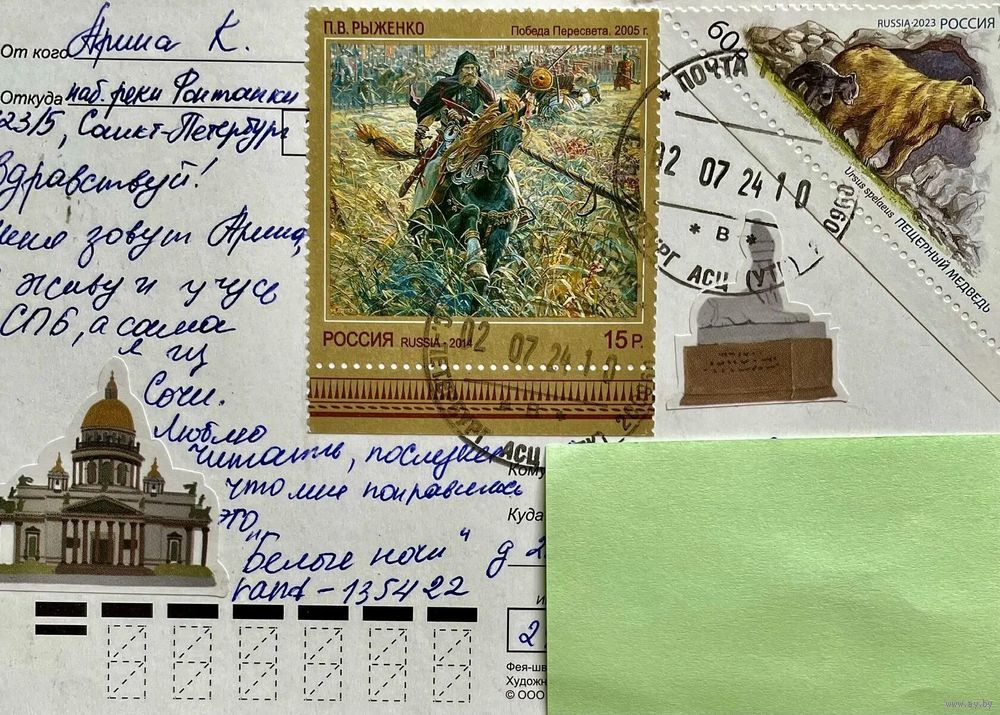 От кого Арина К.
Откуда наб. реки Фонтанки
23/5, Санкт-Петербург
Здравствуй!
меня зовут Арина,
живу и учусь
СПб, а сама
я из
Сочи.
Люблю
читать, последнее
что мне понравилось
это
"Белые ночи"
rand - 135422
П.В. РЫЖЕНКО
Победа Пересвета. 2005 г.
РОССИЯ RUSSIA · 2014 15 Р.
RUSSIA·2023 РОССИЯ
60
Ursus spelaeus ПЕЩЕРНЫЙ МЕДВЕДЬ
* ПОЧТА
02 07 24 10
* В *
АСЦ
02 07 24 10
* В *
АСЦ
Кому
Куда
д 2
2
Фея-шв
Художн
© ООО
www.ay.by